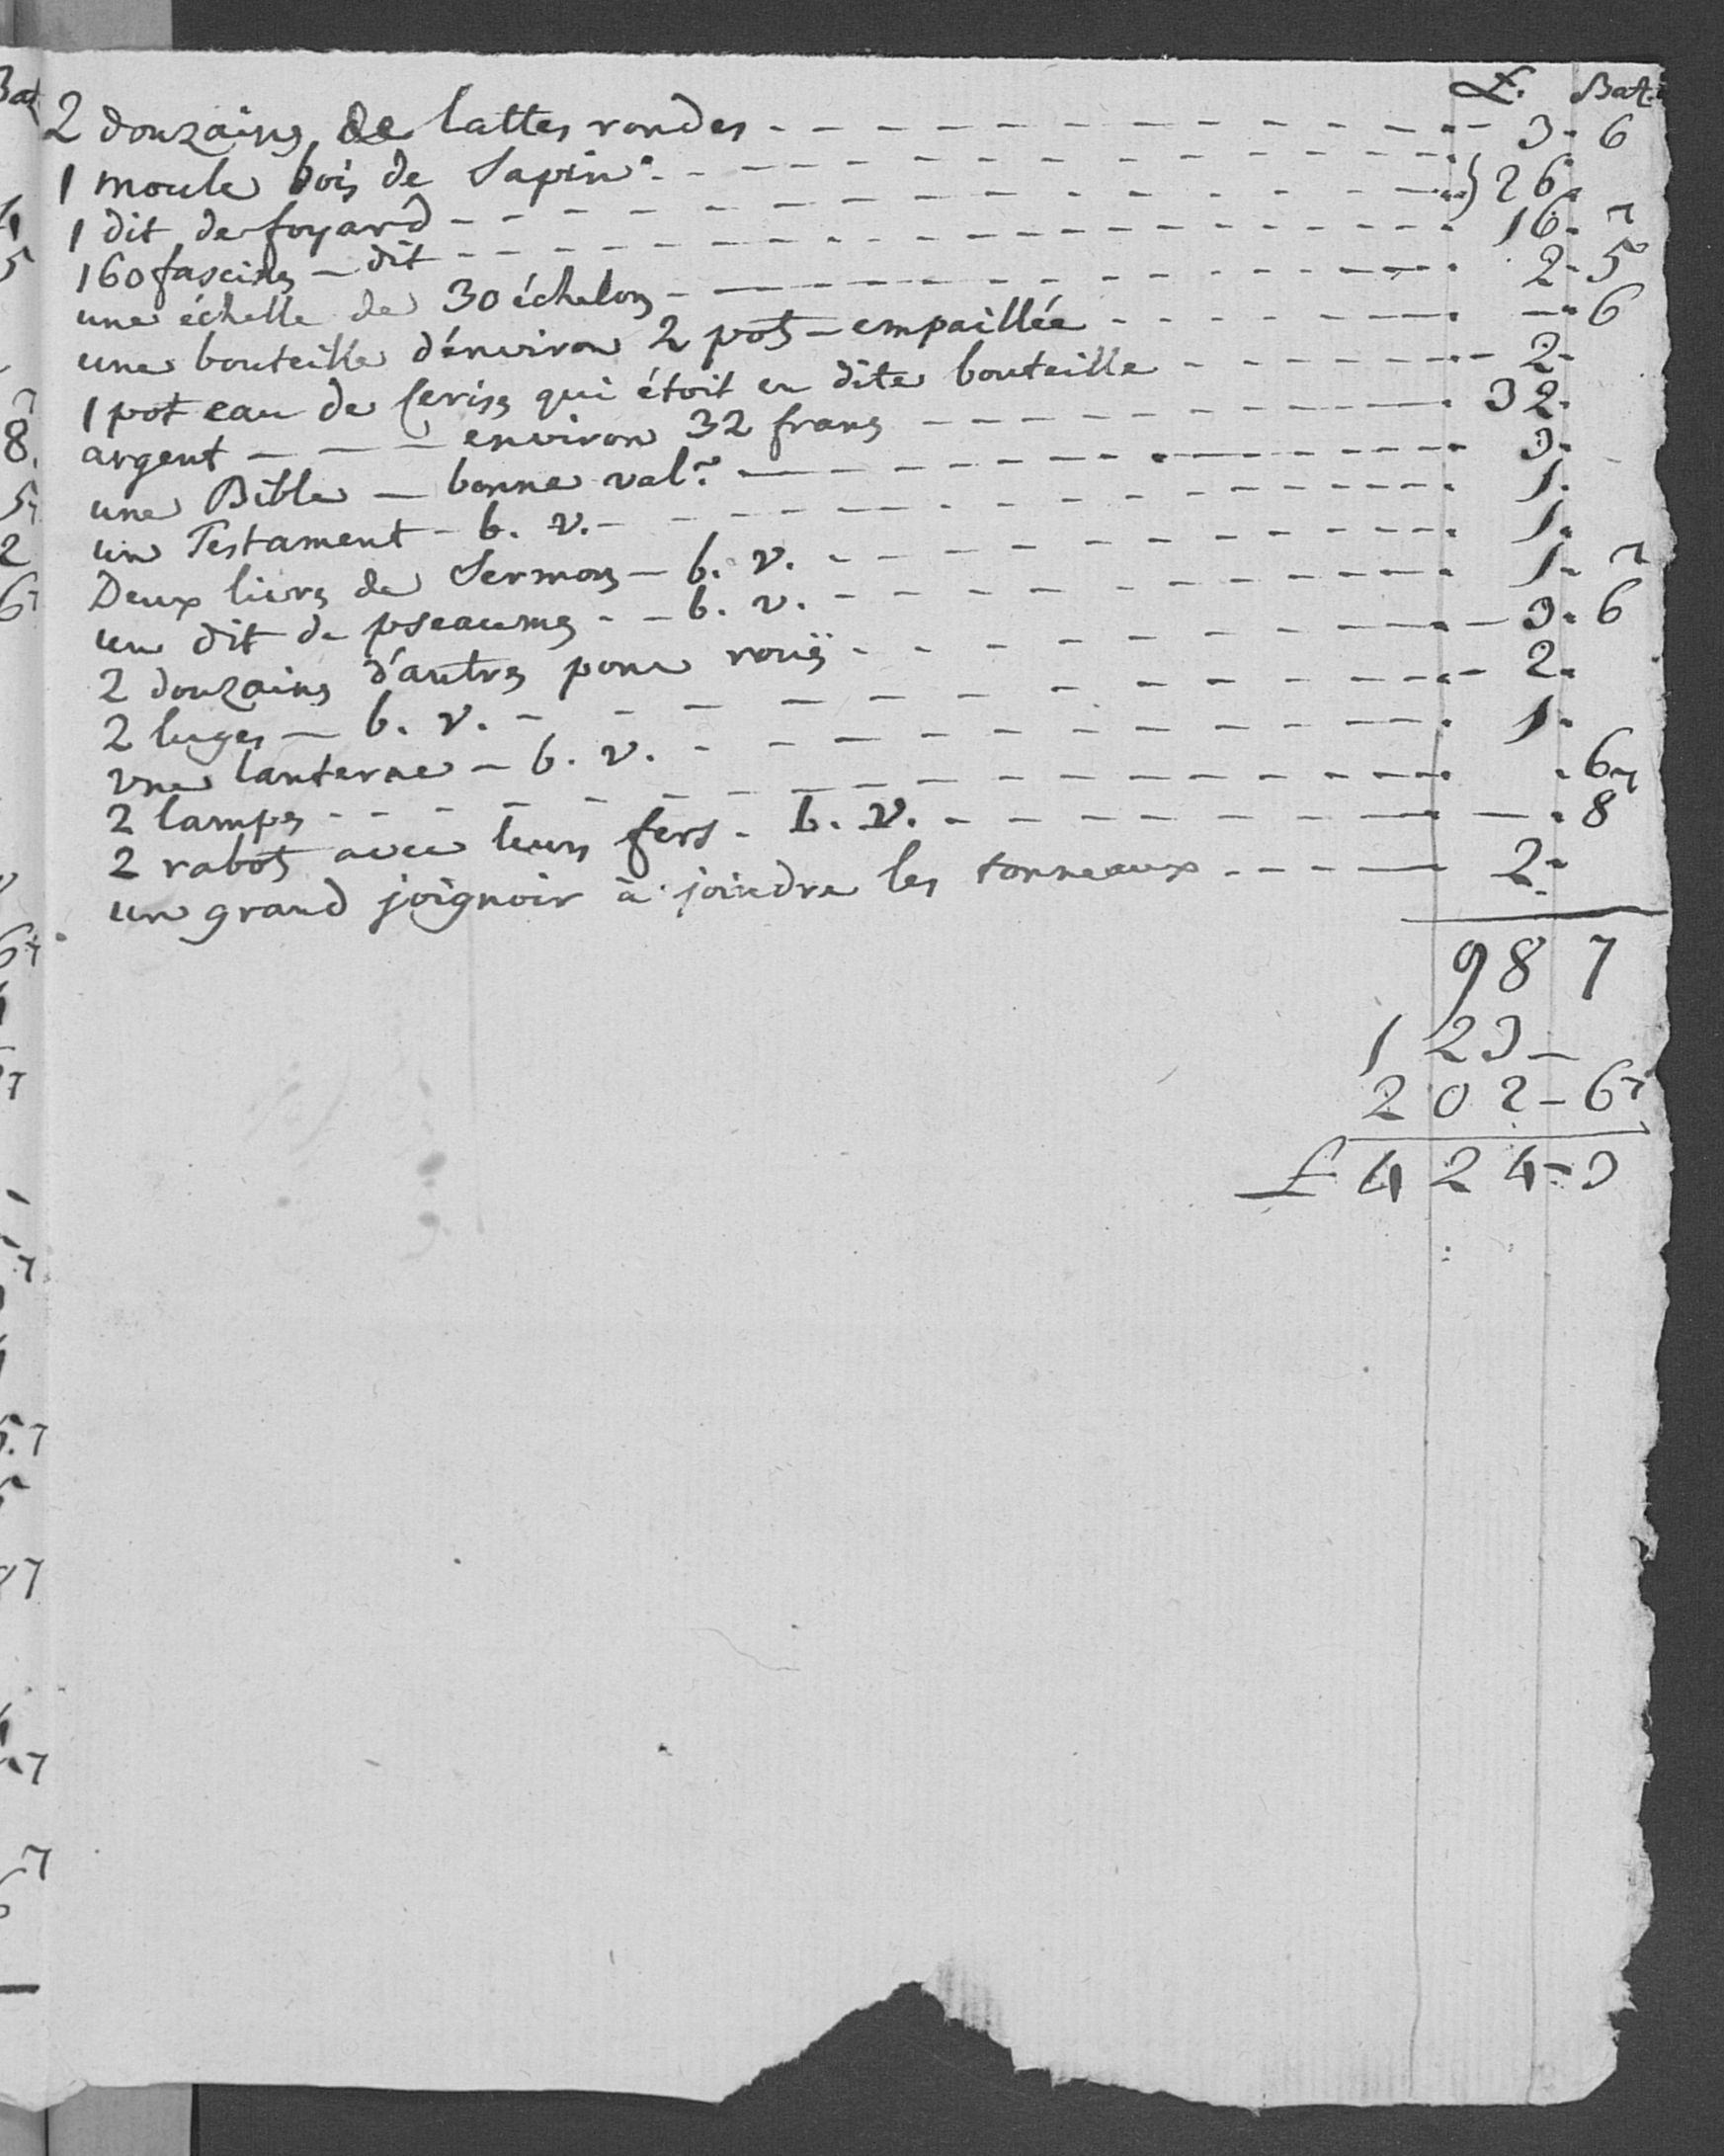 £. Batz
2 douzaines de lattes rondes - 3 - 6
1 moule bois de Sapin
1 dit de foyard - } 26 -
160 fascines - dit - 16 - 7
une échelle de 30 échelons - 2 - 5
une bouteille d'environ 2 pots - empaillée - 6
1 pot eau de Cerises qui étoit en dite bouteille - 2 -
argent - environ 32 francs - 32 -
une Bible - bonne val.r - 3 -
un Testament - b. v. - 1 -
Deux livres de Sermons - b. v. - 1 -
un dit de pseaumes - b. v. - 1 - 7
2 douzaines d'autres pour roües - 3 - 6
2 luges - b. v. - 2 -
une lanterne - b. v. - 1 -
2 lampes - 67
2 rabots avec leurs fers - b. v. - 8
un grand joignoir à joindre les tonneaux - 2 -
98 7
123 -
202 - 67
£ 424 - 3